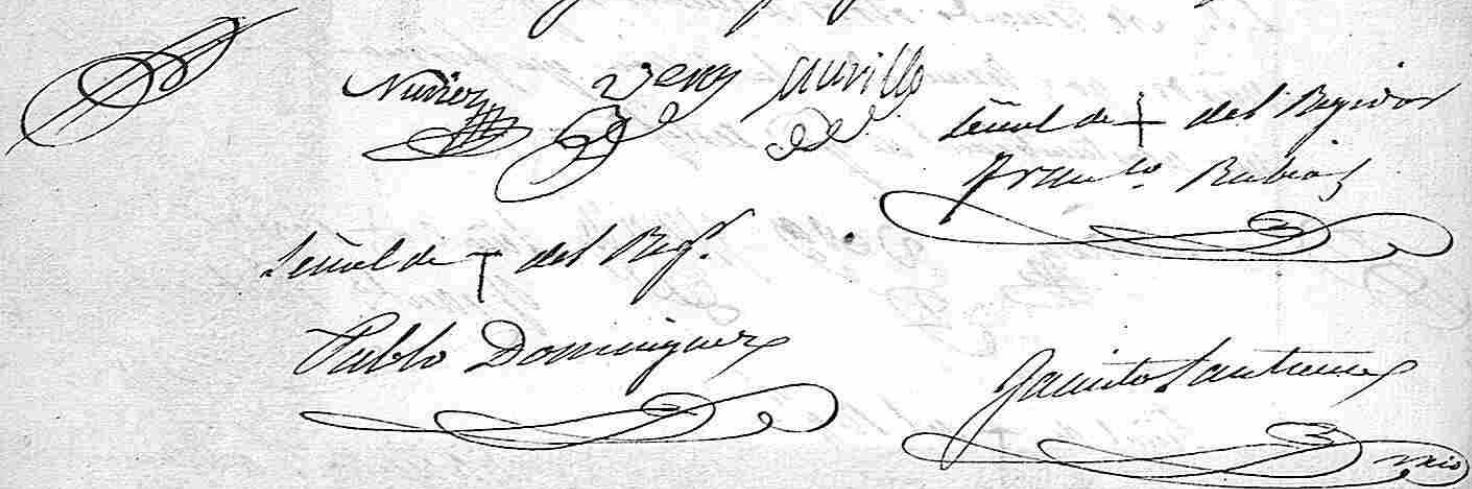 Nuñez Vera Murillo
Señal de + del Regidor
Franco. Rubiaz
Señal de + del Regr.
Pablo Dominguez
Jacinto
srio